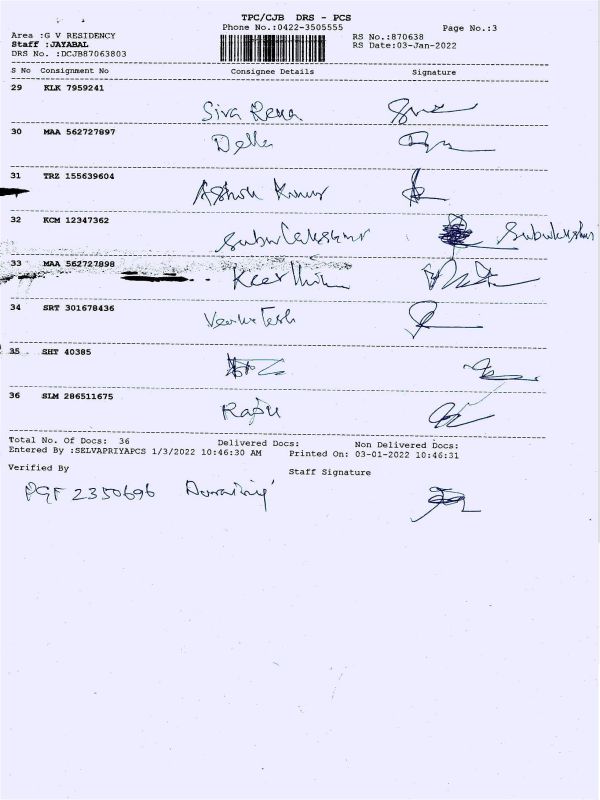 TPC/CJB DRS - PCS
Phone No.:0422-3505555
Page No.:3
Area :G V RESIDENCY
RS No.:870638
Staff :JAYABAL
RS Date:03-Jan-2022
DRS No. :DCJB87063803
S No Consignment No Consignee Details Signature
29 KLK 7959241
Siva Rena
30 MAA 562727897
Della
31 TRZ 155639604
Ashok Kumar
32 KCM 12347362
Subulakshmi
33 MAA 562727898
Keerthi
34 SRT 301678436
Venkatesh
35 SHT 40385
36 SLM 286511675
Raju
Total No. Of Docs: 36 Delivered Docs: Non Delivered Docs:
Entered By :SELVAPRIYAPCS 1/3/2022 10:46:30 AM Printed On: 03-01-2022 10:46:31
Verified By Staff Signature
PGF 2350696